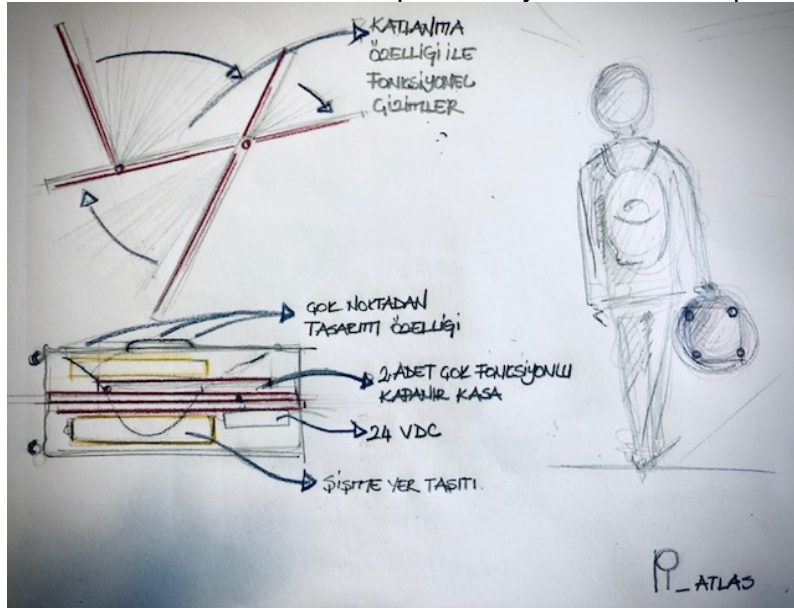 KATLANMA
ÖZELLİĞİ İLE
FONKSİYONEL
ÇİZİMLER
ÇOK NOKTADAN
TASARIM ÖZELLİĞİ
2 ADET ÇOK FONKSİYONLU
KAPANIR KASA
24 VDC
ŞİŞME YER TAŞITI.
_ATLAS